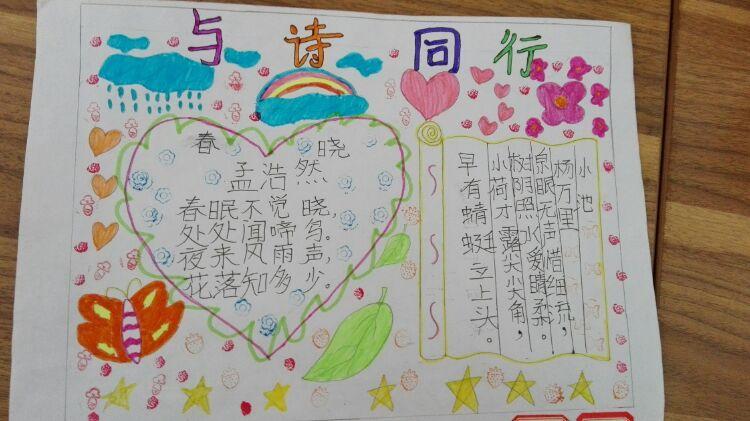 与诗同行
春晓
孟浩然
春眠不觉晓，
处处闻啼鸟。
夜来风雨声，
花落知多少。
小池
杨万里
泉眼无声惜细流，
树阴照水爱晴柔。
小荷才露尖尖角，
早有蜻蜓立上头。